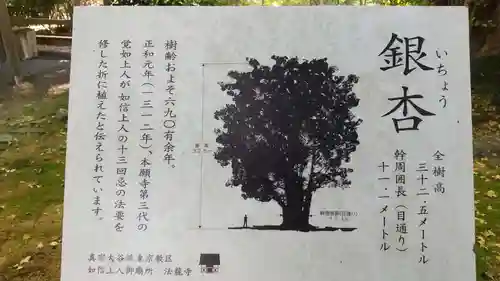 銀杏
いちょう
全樹高
三十二・五メートル
幹周囲長（目通り）
十一・一メートル
樹齢およそ六九〇有余年。
正和元年（一三一二年）、本願寺第三代の
覚如上人が如信上人の十三回忌の法要を
修した折に植えたと伝えられています。
真宗大谷派東京教区
如信上人御廟所　法龍寺